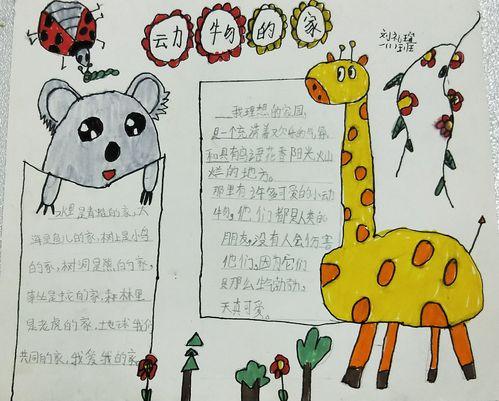 动物的家
我理想的家园,
是一个充满着欢乐的气氛
和具有鸟语花香阳光灿
烂的地方。
那里有许多可爱的小动
物,他们都是人类的
朋友,没有人会伤害
他们,因为它们
是那么生动动,
天真可爱。
是青蛙的家,大
海是鱼儿的家,树上是小鸟
的家,树洞是熊的家,
草丛是虫的家,森林里
是老虎的家,地球我们
共同的家,我爱我的家。